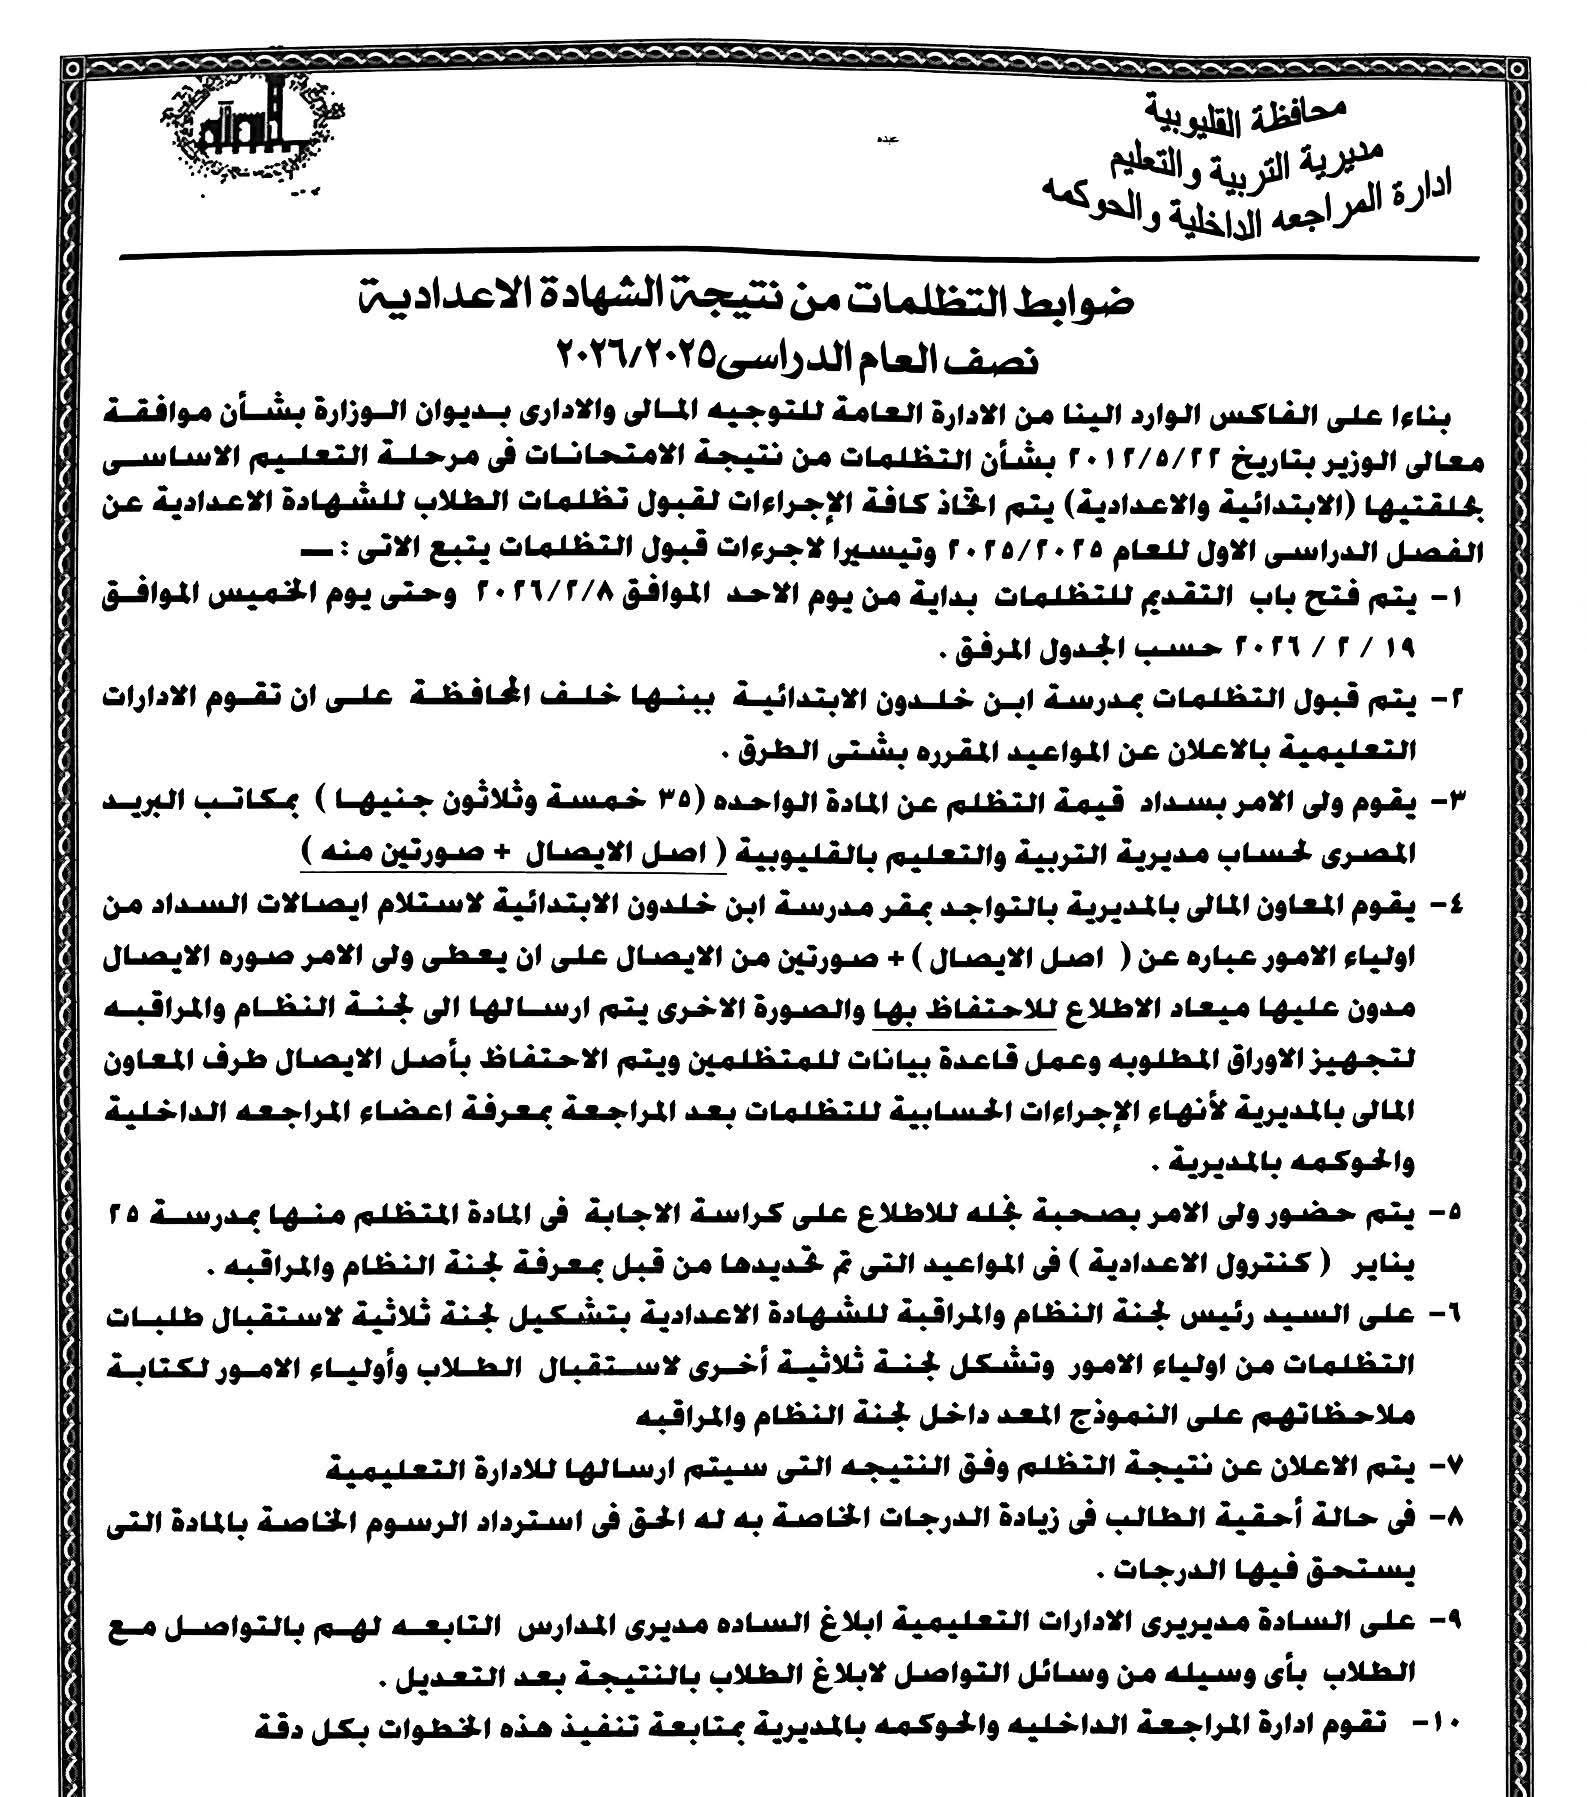 محافظة القليوبية
مديرية التربية والتعليم
ادارة المراجعه الداخلية والحوكمه
عبده
ضوابط التظلمات من نتيجة الشهادة الاعدادية
نصف العام الدراسى ٢٠٢٦/٢٠٢٥
بناءا على الفاكس الوارد الينا من الادارة العامة للتوجيه المالى والادارى بديوان الوزارة بشأن موافقة
معالى الوزير بتاريخ ٢٠١٢/٥/٢٢ بشأن التظلمات من نتيجة الامتحانات فى مرحلة التعليم الاساسى
بحلقتيها (الابتدائية والاعدادية) يتم اتخاذ كافة الإجراءات لقبول تظلمات الطلاب للشهادة الاعدادية عن
الفصل الدراسى الاول للعام ٢٠٢٥/٢٠٢٥ وتيسيرا لاجرءات قبول التظلمات يتبع الاتى : ــ
١- يتم فتح باب التقديم للتظلمات بداية من يوم الاحد الموافق ٢٠٢٦/٢/٨ وحتى يوم الخميس الموافق
١٩ / ٢ / ٢٠٢٦ حسب الجدول المرفق .
٢- يتم قبول التظلمات بمدرسة ابن خلدون الابتدائية ببنها خلف المحافظة على ان تقوم الادارات
التعليمية بالاعلان عن المواعيد المقرره بشتى الطرق .
٣- يقوم ولى الامر بسداد قيمة التظلم عن المادة الواحده (٣٥ خمسة وثلاثون جنيها ) بمكاتب البريد
المصرى لحساب مديرية التربية والتعليم بالقليوبية ( اصل الايصال + صورتين منه )
٤- يقوم المعاون المالى بالمديرية بالتواجد بمقر مدرسة ابن خلدون الابتدائية لاستلام ايصالات السداد من
اولياء الامور عباره عن ( اصل الايصال ) + صورتين من الايصال على ان يعطى ولى الامر صوره الايصال
مدون عليها ميعاد الاطلاع للاحتفاظ بها والصورة الاخرى يتم ارسالها الى لجنة النظام والمراقبه
لتجهيز الاوراق المطلوبه وعمل قاعدة بيانات للمتظلمين ويتم الاحتفاظ بأصل الايصال طرف المعاون
المالى بالمديرية لأنهاء الإجراءات الحسابية للتظلمات بعد المراجعة بمعرفة اعضاء المراجعه الداخلية
والحوكمه بالمديرية .
٥- يتم حضور ولى الامر بصحبة نجله للاطلاع على كراسة الاجابة فى المادة المتظلم منها بمدرسة ٢٥
يناير ( كنترول الاعدادية ) فى المواعيد التى تم تحديدها من قبل بمعرفة لجنة النظام والمراقبه .
٦- على السيد رئيس لجنة النظام والمراقبة للشهادة الاعدادية بتشكيل لجنة ثلاثية لاستقبال طلبات
التظلمات من اولياء الامور وتشكل لجنة ثلاثية أخرى لاستقبال الطلاب وأولياء الامور لكتابة
ملاحظاتهم على النموذج المعد داخل لجنة النظام والمراقبه
٧- يتم الاعلان عن نتيجة التظلم وفق النتيجه التى سيتم ارسالها للادارة التعليمية
٨- فى حالة أحقية الطالب فى زيادة الدرجات الخاصة به له الحق فى استرداد الرسوم الخاصة بالمادة التى
يستحق فيها الدرجات .
٩- على السادة مديريرى الادارات التعليمية ابلاغ الساده مديرى المدارس التابعه لهم بالتواصل مع
الطلاب بأى وسيله من وسائل التواصل لابلاغ الطلاب بالنتيجة بعد التعديل .
١٠- تقوم ادارة المراجعة الداخليه والحوكمه بالمديرية بمتابعة تنفيذ هذه الخطوات بكل دقة